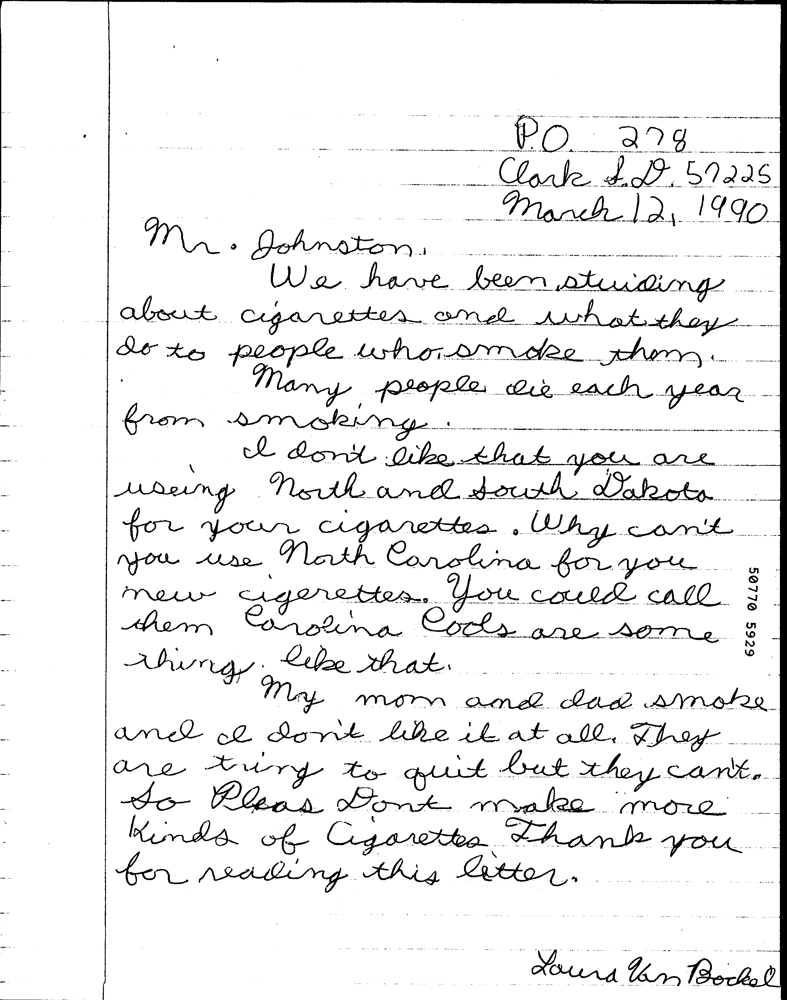 P.O. 278
Clark S.D. 57225
March 12, 1990
Mr. Johnston,
We have been stuiding
about cigarettes and what they
do to people who smoke them.
Many people die each year
from smoking.
I don't like that you are
useing North and South Dakota
for your cigarettes. Why can't
you use North Carolina for you
new cigerettes. You could call
them Carolina Cools are some
thing like that.
My mom and dad smoke
and I don't like it at all. They
are tring to quit but they can't.
So Pleas Dont make more
Kinds of Cigarettes Thank you
for reading this letter.
Laura Van Bockel
50770 5929